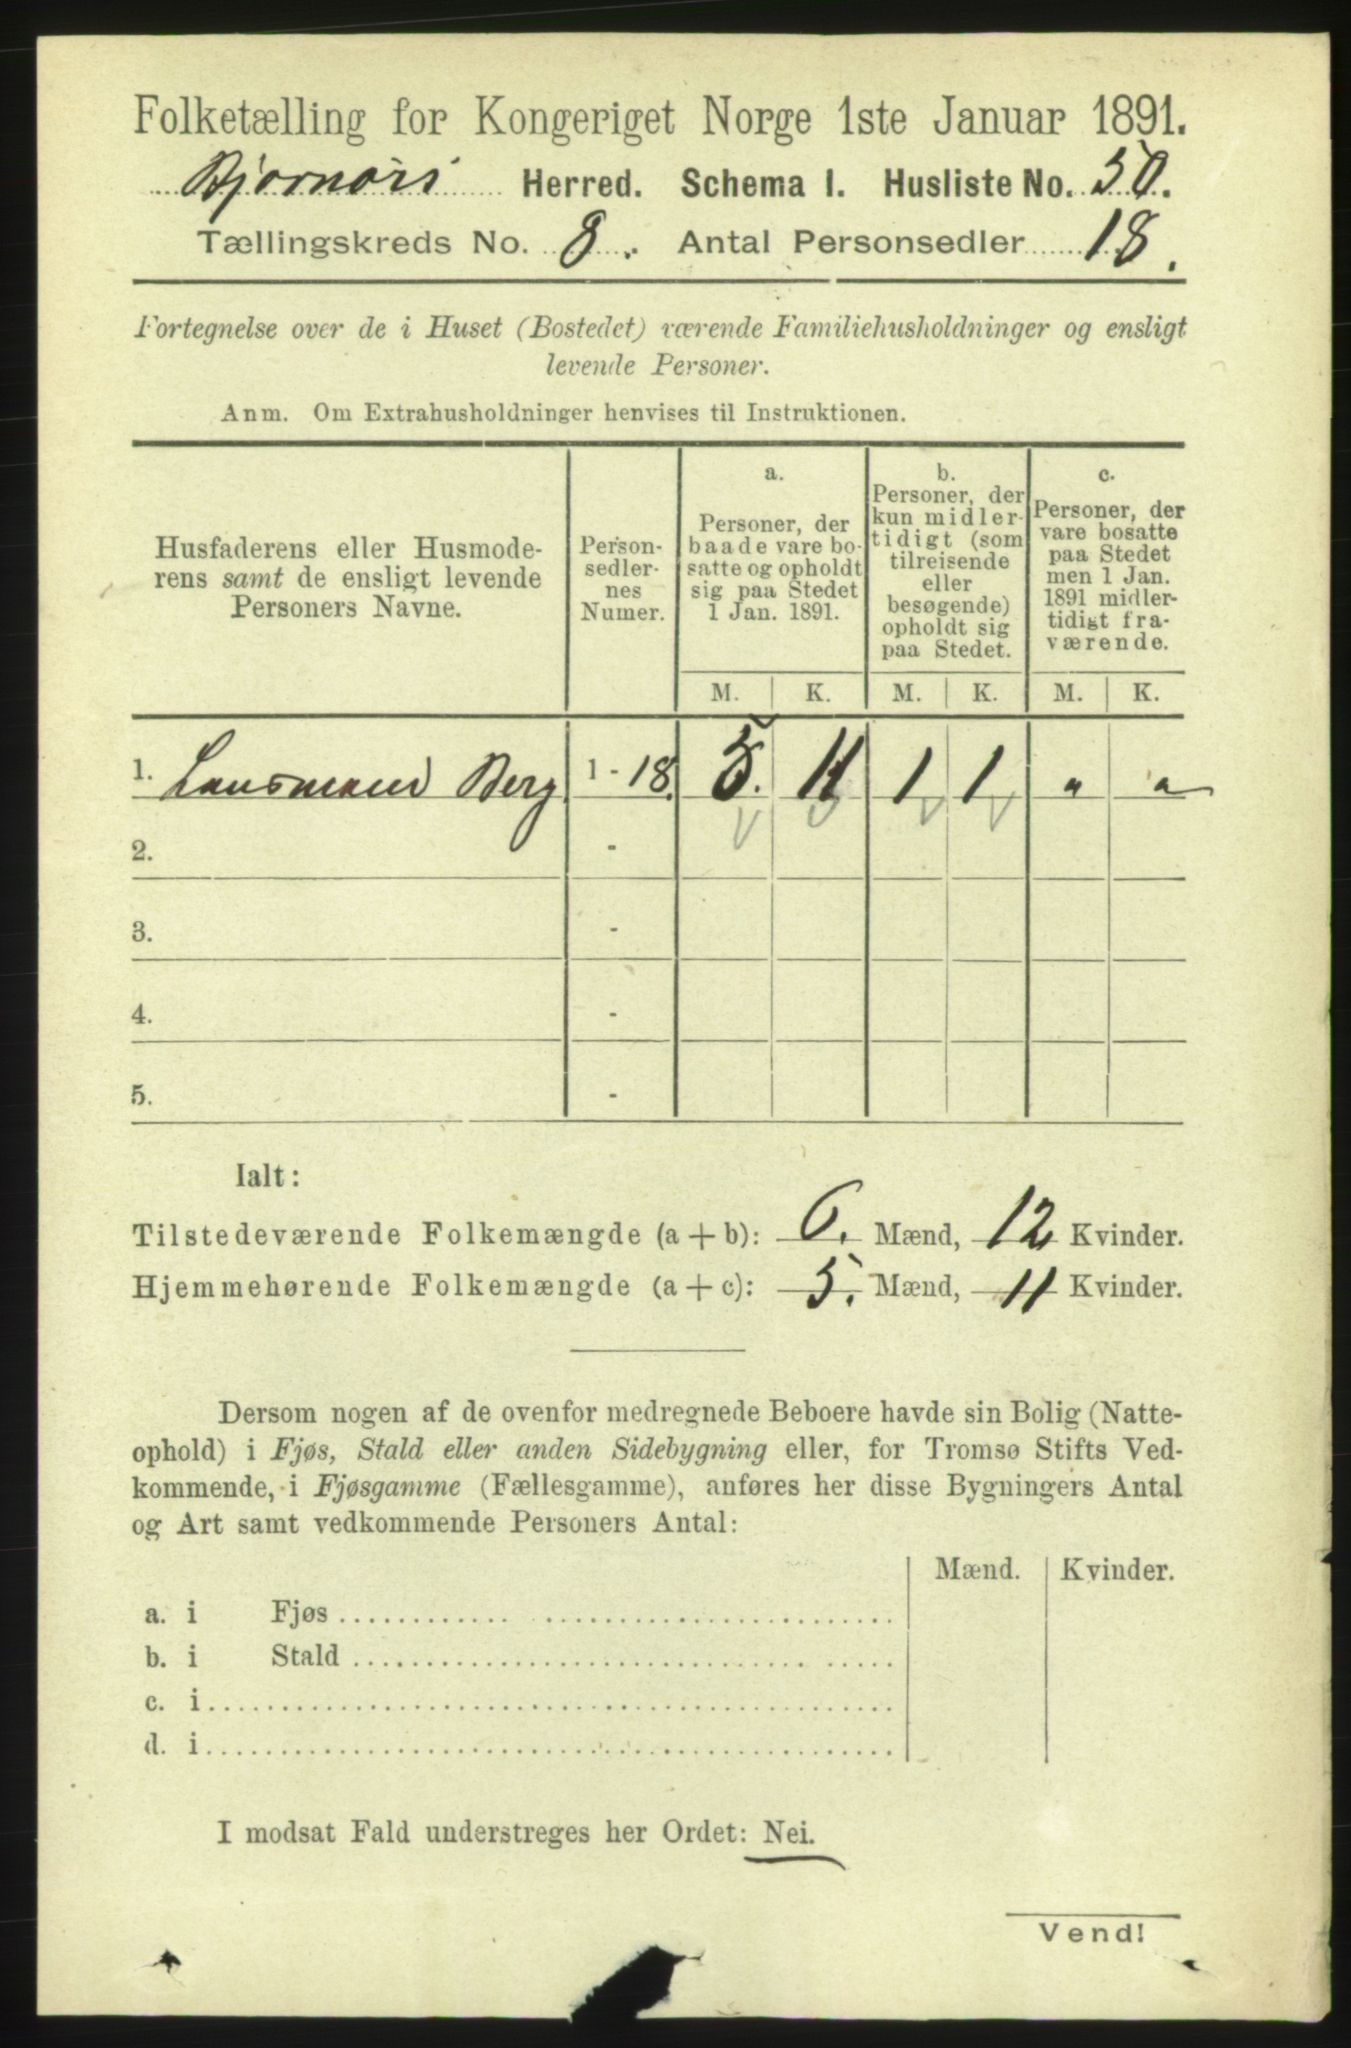 Folketælling for Kongeriget Norge 1ste Januar 1891.
Bjørnørs Herred. Schema I. Husliste No. 50.
Tællingskreds No. 8. Antal Personsedler 18.
Fortegnelse over de i Huset (Bostedet) værende Familiehusholdninger og ensligt
levende Personer.
Anm. Om Extrahusholdninger henvises til Instruktionen.
Husfaderens eller Husmode-
rens samt de ensligt levende
Personers Navne.
Person-
sedler-
nes
Numer.
a.
Personer, der
baade vare bo-
satte og opholdt
sig paa Stedet
1 Jan. 1891.
b.
Personer, der
kun midler-
tidigt (som
tilreisende
eller
besøgende)
opholdt sig
paa Stedet.
c.
Personer, der
vare bosatte
paa Stedet
men 1 Jan.
1891 midler-
tidigt fra-
værende.
M. K. M. K. M. K.
1. Lensmand Berg 1 - 18. 5. 11 1 1 " "
2. -
3. -
4. -
5. -
Ialt:
Tilstedeværende Folkemængde (a + b): 6. Mænd, 12 Kvinder.
Hjemmehørende Folkemængde (a + c): 5. Mænd, 11 Kvinder.
Dersom nogen af de ovenfor medregnede Beboere havde sin Bolig (Natte-
ophold) i Fjøs, Stald eller anden Sidebygning eller, for Tromsø Stifts Ved-
kommende, i Fjøsgamme (Fællesgamme), anføres her disse Bygningers Antal
og Art samt vedkommende Personers Antal:
Mænd. Kvinder.
a. i Fjøs
b. i Stald
c. i
d. i
I modsat Fald understreges her Ordet: Nei.
Vend!